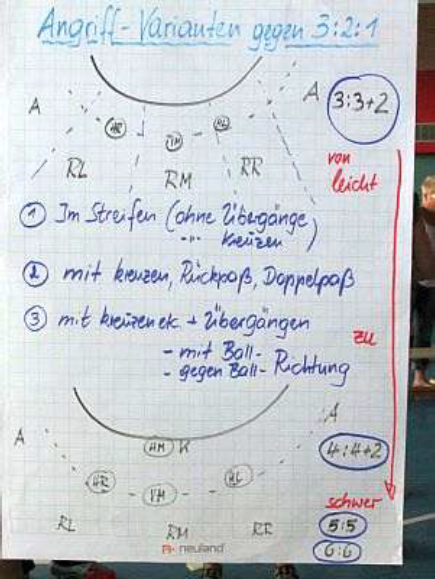 Angriff-Varianten gegen 3:2:1
A
A
3:3+2
HR
VM
HL
RL
RM
RR
von
leicht
① Im Streifen (ohne Übergänge
-"- kreuzen)
② mit kreuzen, Rückpaß, Doppelpaß
③ mit kreuzen etc. + Übergängen
zu
- mit Ball-
- gegen Ball-Richtung
A
A
HM K
4:4+2
HR
VM
HL
schwer
RL
RM
RR
5:5
6:6
neuland